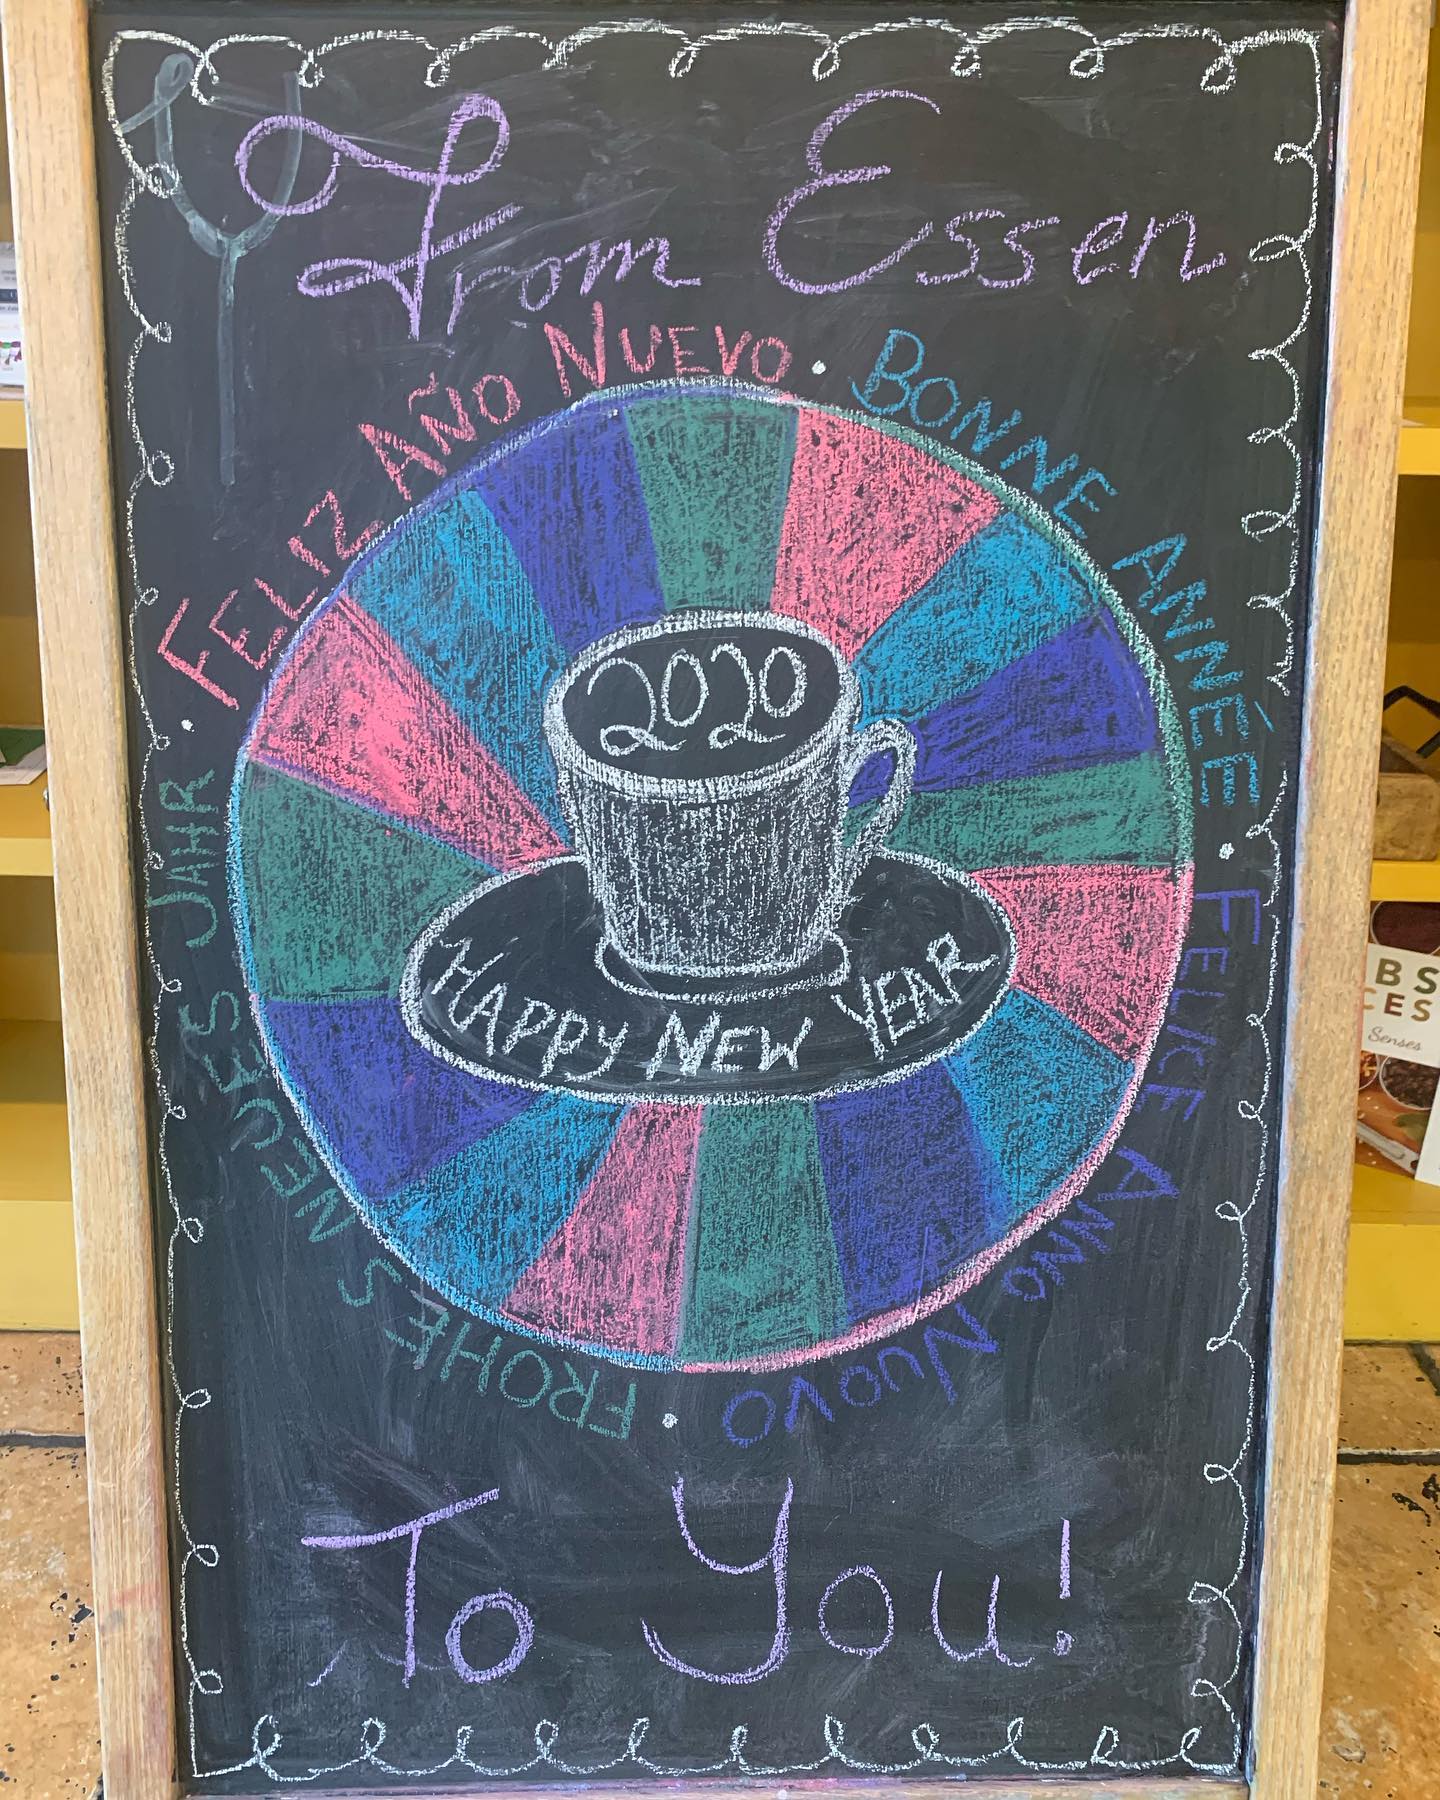 From Essen
FELIZ AÑO NUEVO • BONNE ANNÉE • FELICE ANNO NUOVO • FROHES NEUES JAHR •
2020
HAPPY NEW YEAR
To You!
BS
CES
Senses